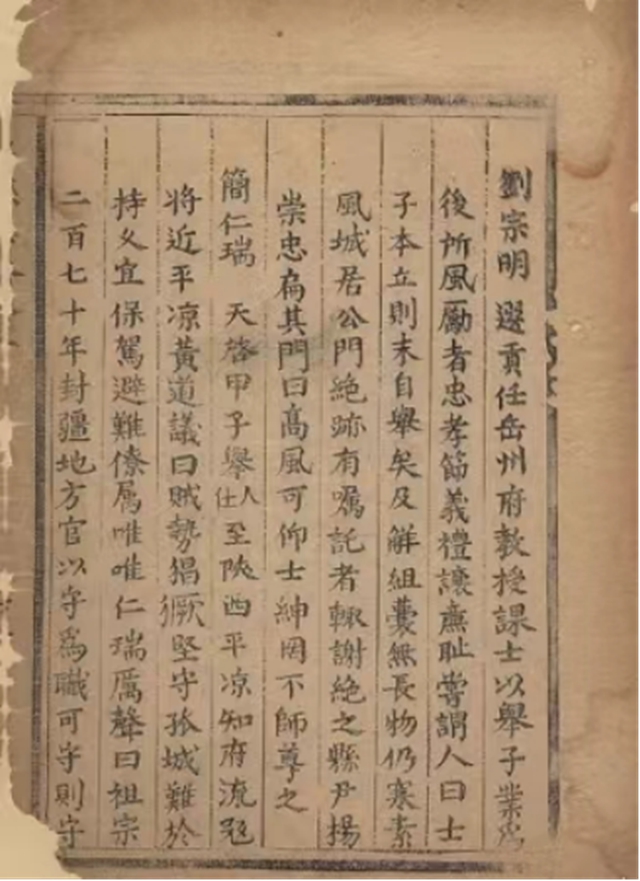 劉宗明 選貢任岳州府教授課士以舉子業為
後所風勵者忠孝節義禮讓亷耻嘗謂人曰士
子本立則末自舉矣及解組囊無長物仍寒素
風城居公門絶跡有囑託者輙謝絶之縣尹揚
崇忠扁其門曰高風可仰士紳罔不師尊之
簡仁瑞 天啓甲子舉人仕至陜西平凉知府流冦
將近平凉黃道議曰賊勢猖獗堅守孤城難於
持久宜保駕避難僚属唯唯仁瑞厲聲曰祖宗
二百七十年封疆地方官以守為職可守則守